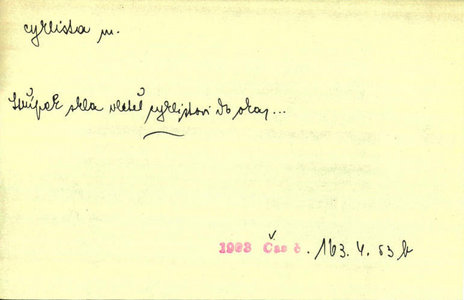 cyklista m.
Střípek skla vletěl cyklistovi do oka, ...
1903 Čas č. 163. 4. 53 b